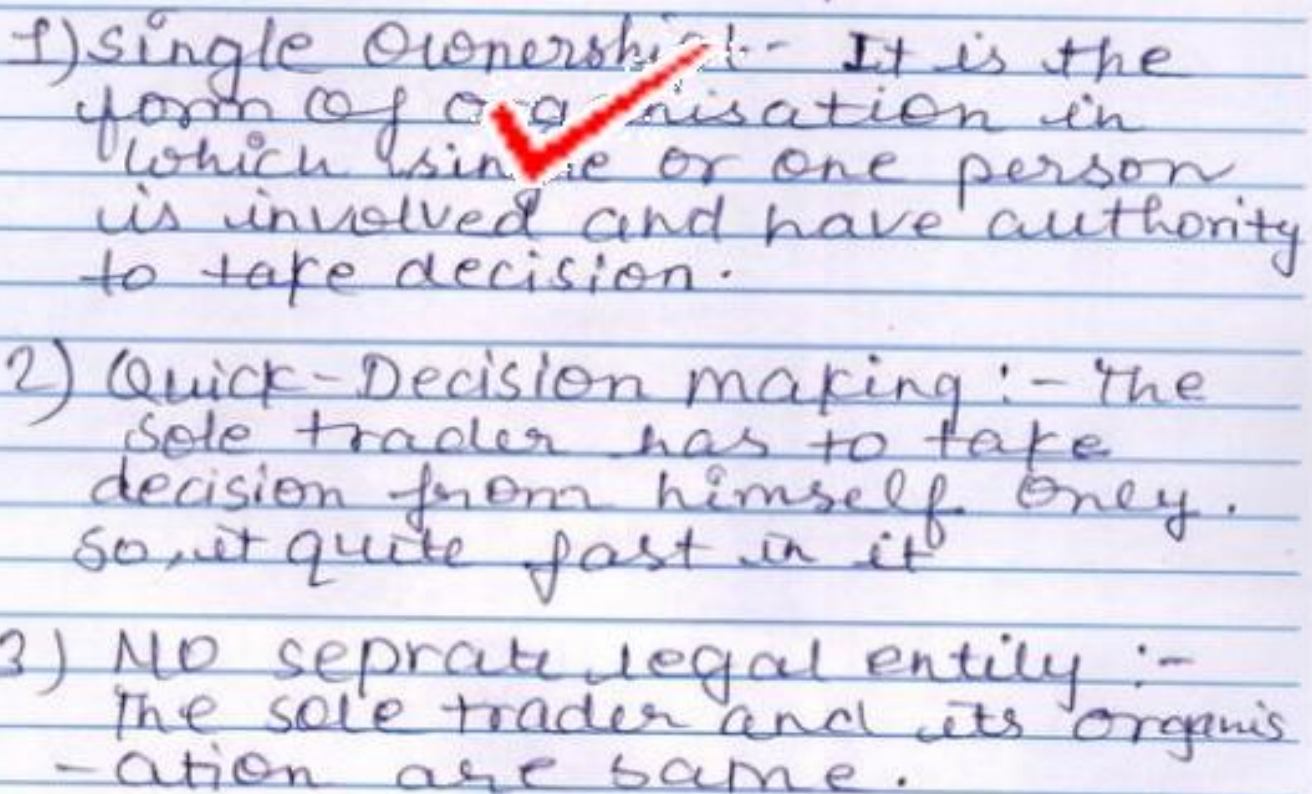 1) Single Ownership:- It is the
form of organisation in
which single or one person
is involved and have authority
to take decision.
2) Quick-Decision making :- The
sole trader has to take
decision from himself only.
so, it quite fast in it
3) No seprate legal entity :-
The sole trader and its organis
-ation are same.